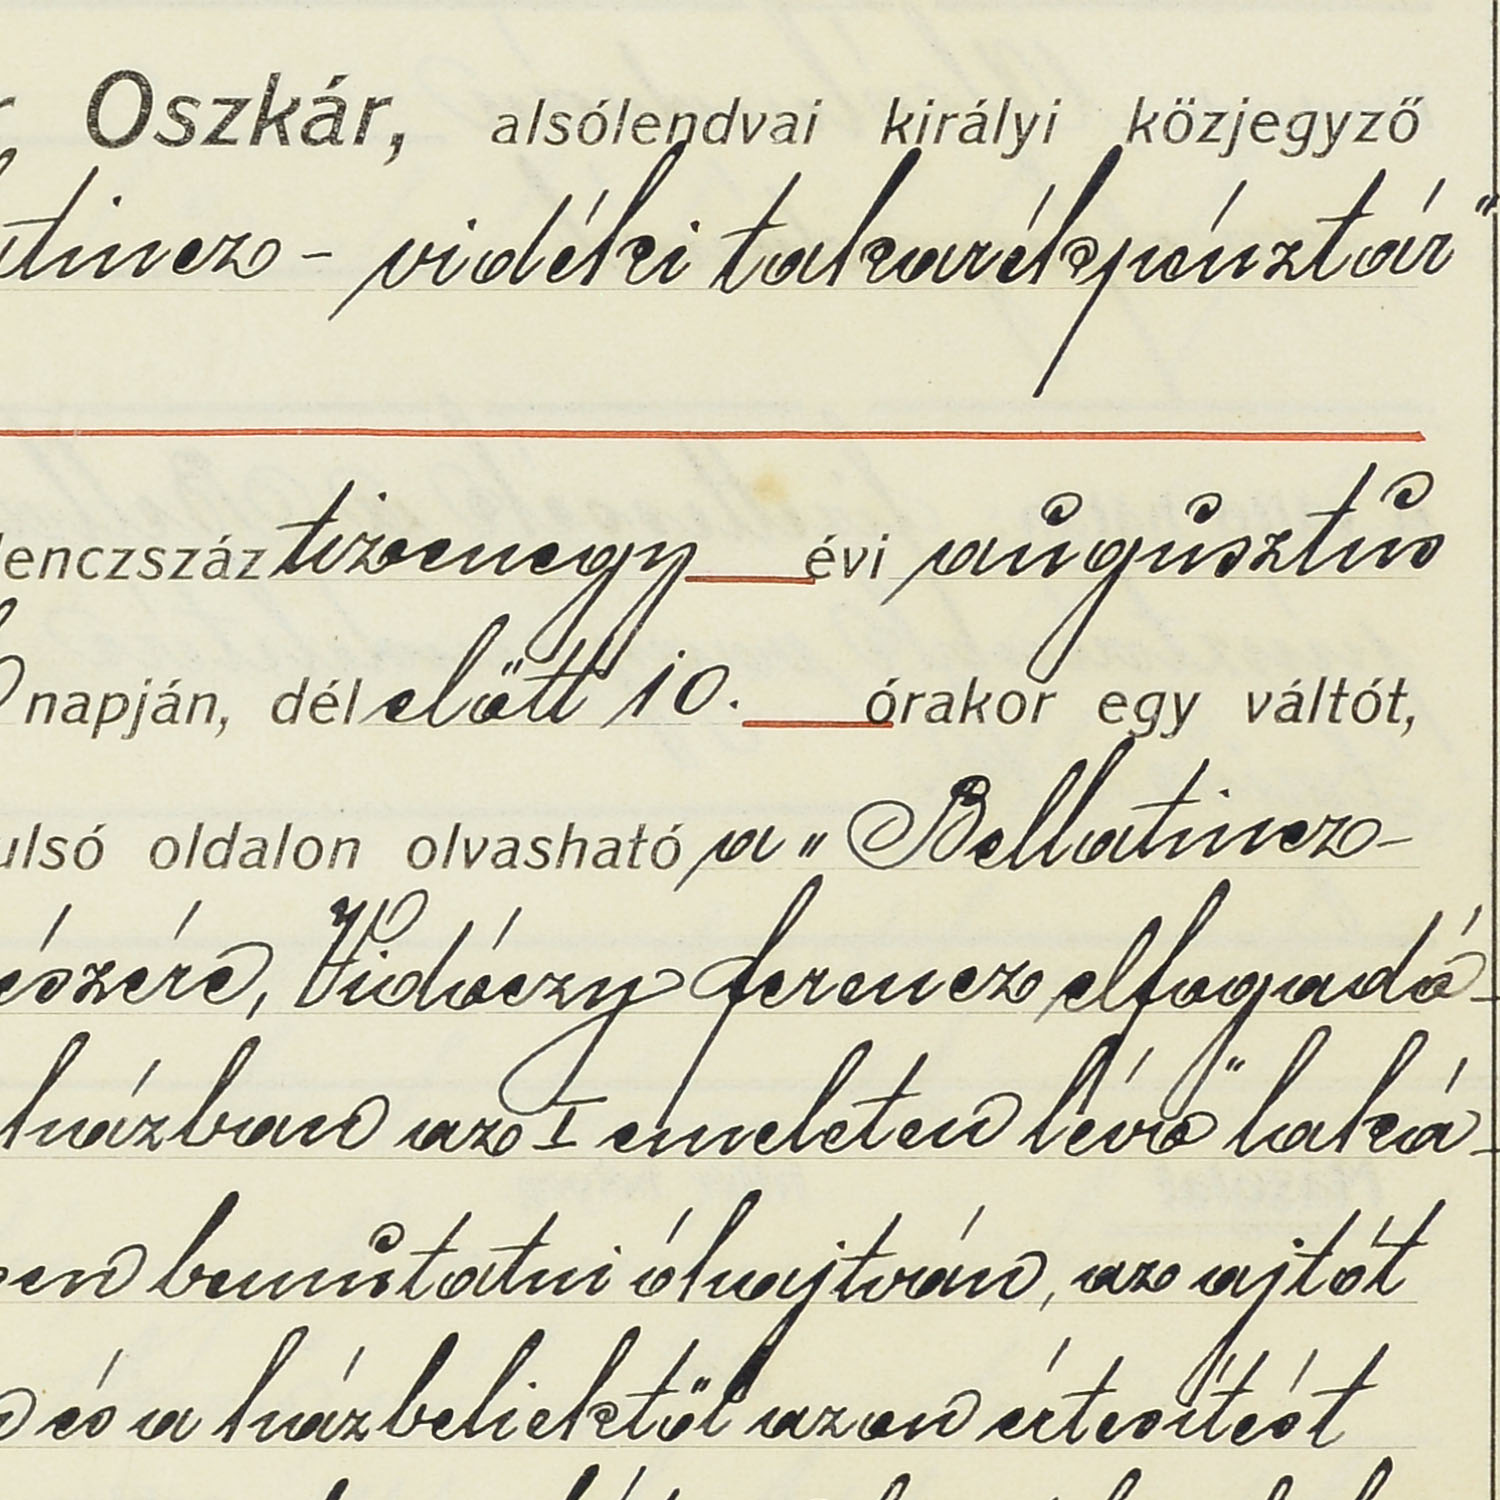 Oszkár, alsólendvai királyi közjegyző
tincz - vidéki takarékpénztár"
lenczszáz tizenegy évi augusztus
napján, dél előtt 10. órakor egy váltót,
ulsó oldalon olvasható a „Bellatincz-
észére, Vidóczy Ferencz elfogadó-
házban az I emeleten lévő laká-
en bemutatni óhajtván, az ajtót
és a házbeliektől azon értesítést